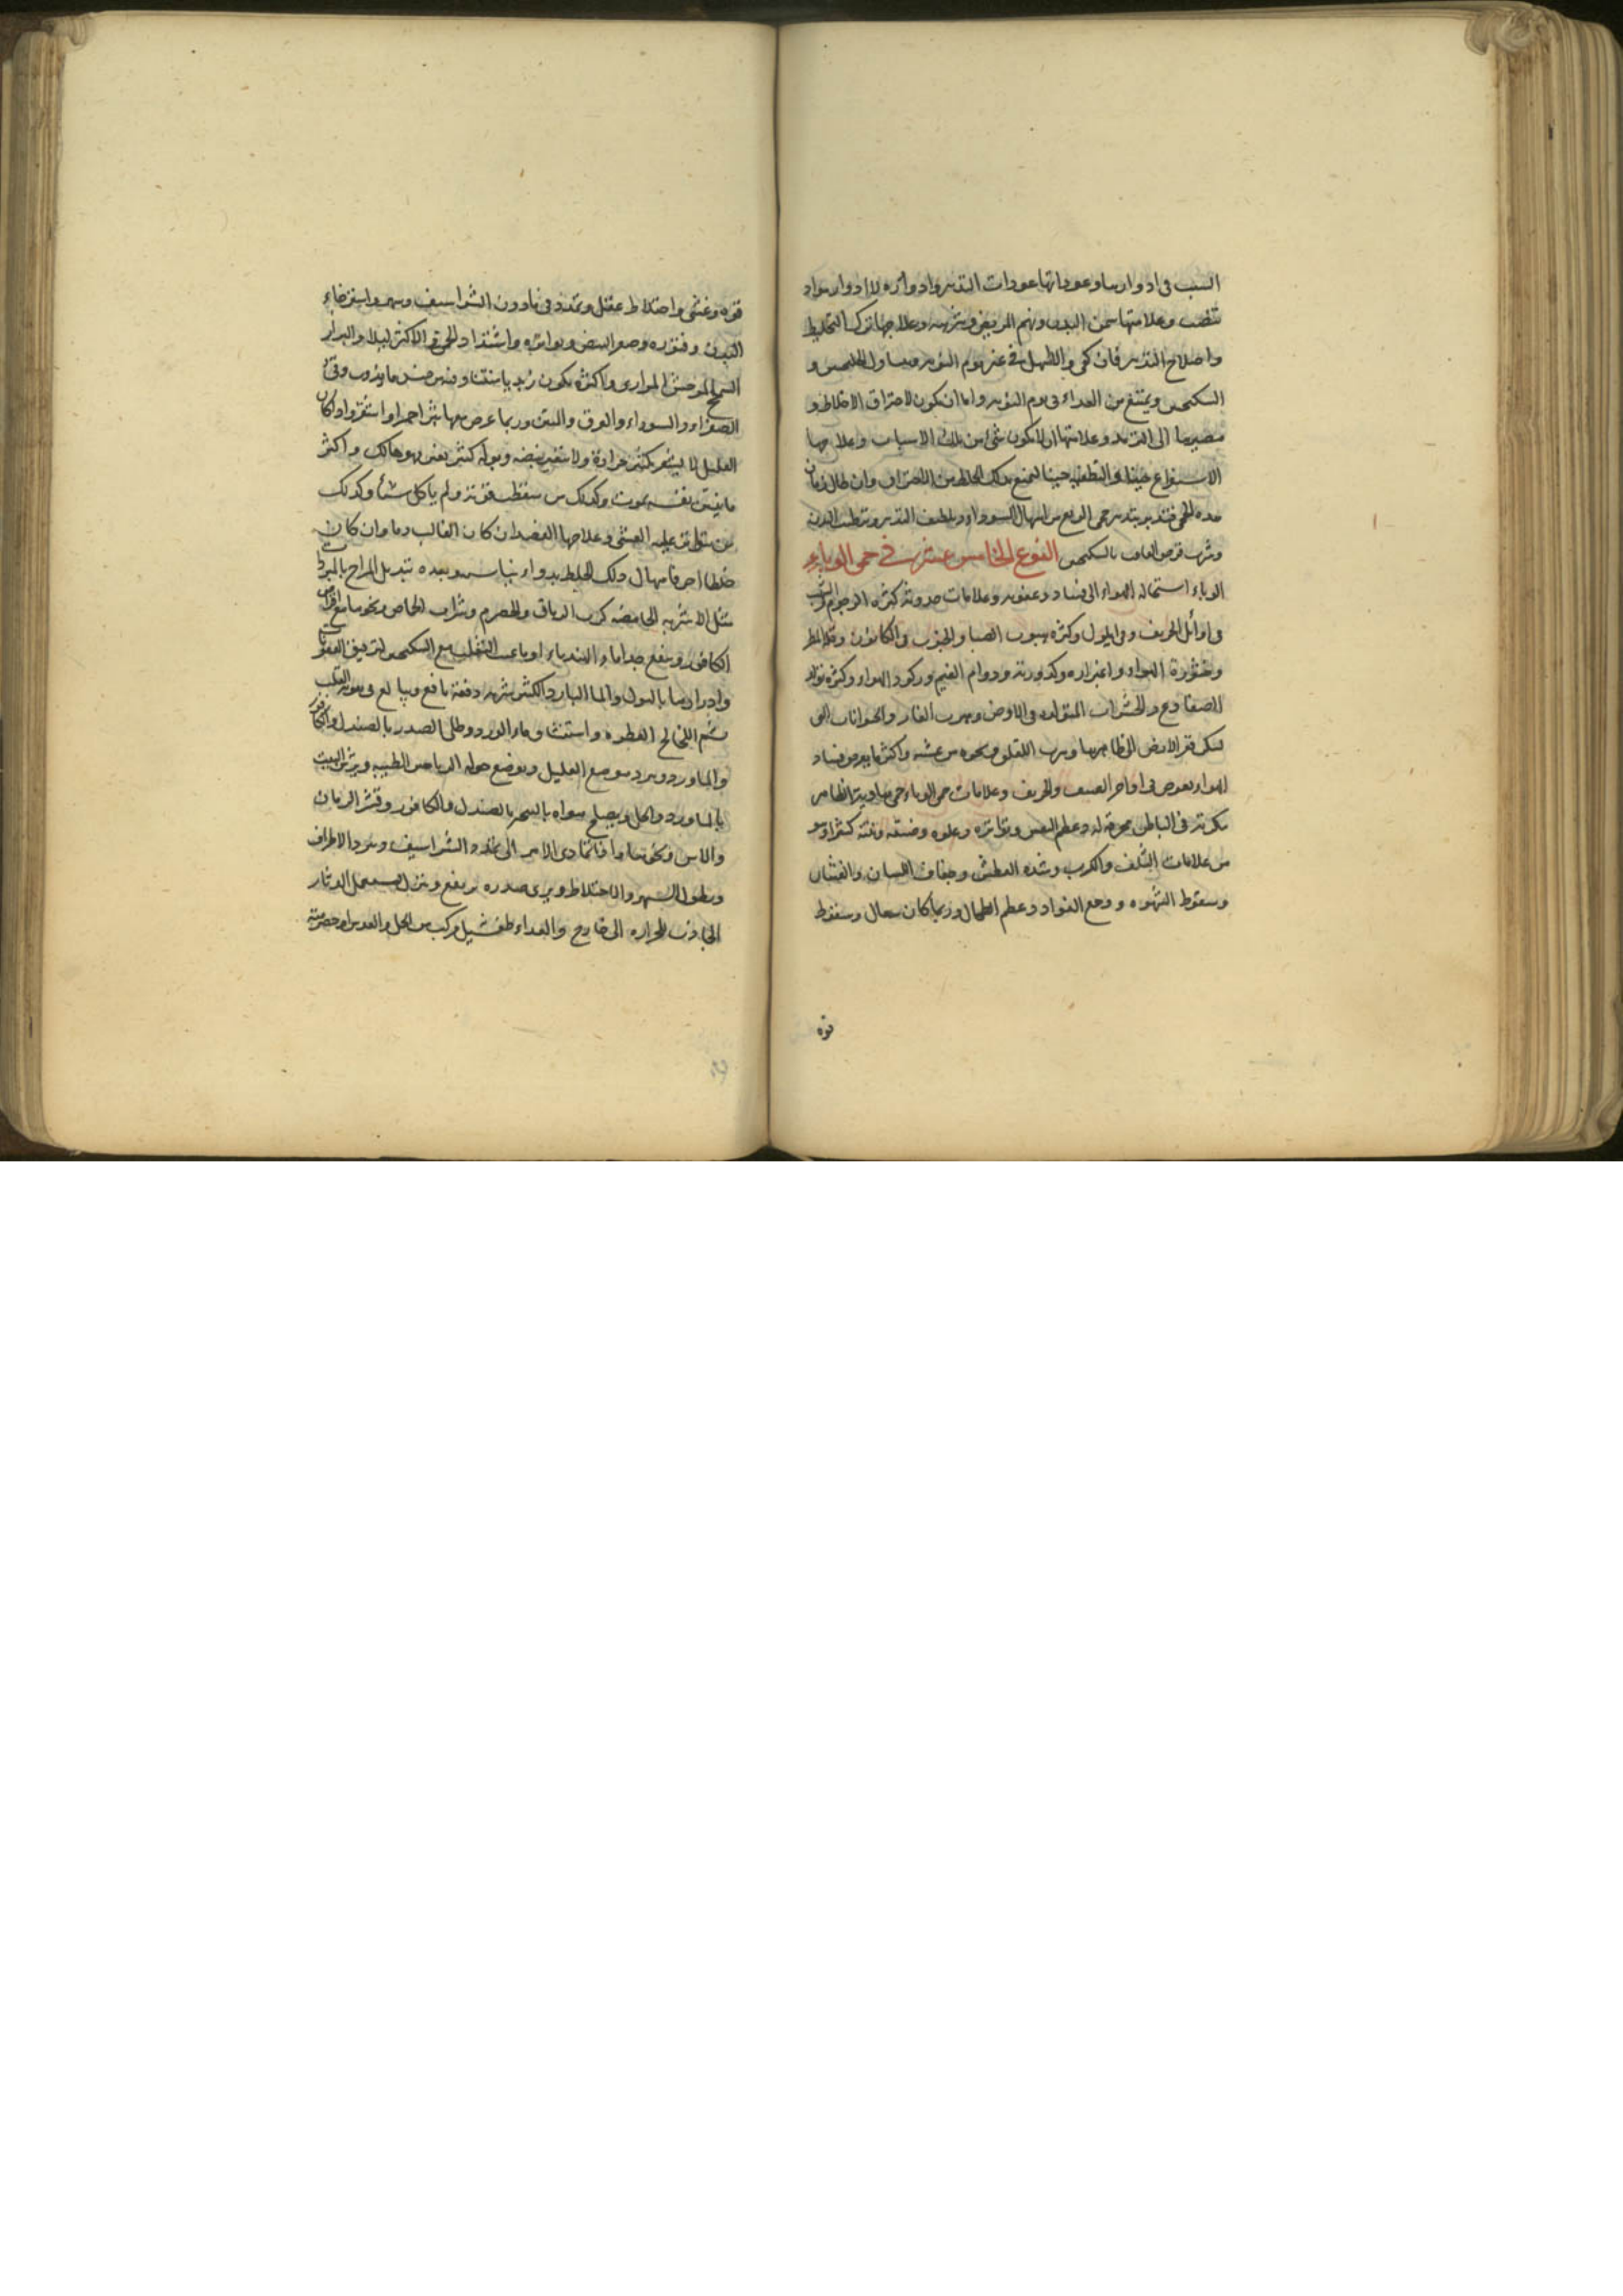 السبب فى ادوارها وعوداتها عودات التدبير وادواره لا ادوار مواد
تنصب وعلامتها سمن البدن ونهم المريض وشربه وعلاجها ترك التخليط
واصلاح التدبير فان كفى والا فى غير يوم النوبه وتناول الجلنجبين و
السكنجبين ويمتنع من الغداء فى يوم النوبه واما ان تكون لاحتراق الاخلاط و
مصيرها الى وعلامتها ان لا يكون شئ من تلك الاسباب وعلاجها
الاستفراغ حينا والتطفيه حينا ليمنع ذلك الخلط من الاحتراق وان طال زمان
مده الحمى فتدبر بتدبير حمى الربع من اسهال السوداء وتلطيف التدبير وترطيب البدن
وشرب قرص الغافت بالسكنجبين النوع الخامس عشر فى حمى الوباء
الوباء استحاله الهواء الى فساد وعفونه وعلامات حدوثه كثره الرجوم والشهب
فى اوائل الخريف وفى ايلول وكثره هبوب الصبا والجنوب فى الكانونين وقله المطر
وخثورة الهواء واغبراره وكدورته ودوام الغيم وركود الهواء وكثره تولد
الضفادع والحشرات المتولده فى الارض وهرب الفار والحيوانات التى
تسكن قعر الارض الى ظاهرها وهرب اللقلق ونحوه من عشه واكثر ما يعرض فساد
الهواء يعرض فى اواخر الصيف والخريف وعلامات حمى الوباء حمى هادية الظاهر
مكربة فى الباطن محرقة له وعظم النفس وتواتره وعلوه وضيقه ونتنه كثيرا وهو
من علامات التلف والكرب وشده العطش وجفاف اللسان والغثيان
وسقوط الشهوه ووجع الفواد وعظم الطحال وربما كان سعال وسقوط
قوه
قوه وغشى واختلاط عقل وتمدد فى مادون الشراسيف وسهر واسترخاء
البدن وفتوره وصغر النبض وتواتره واشتداد الحمى فى الاكثر ليلا والبراز
السمج الموحش المرارى واكثره يكون زبديا منتنا وفيه من جنس ما يذوب وقئ
الصفراء والسوداء والعرق والنتن وربما عرض معها بثر احمر او اشقر واذا كان
العليل لا يشعر بكثير حرارة ولا يتغير نبضه وبوله كثير تغير وهو هالك واكثر
ما يضيق نفسه يموت وكذلك من سقطت قوته ولم ياكل شيئا وكذلك
من تواتر عليه الغشى وعلاجها الفصد ان كان الغالب دما وان كان
خلطا اخر فاسهال ذلك الخلط بدواء يناسبه وبعده تبديل المزاج بالمبردات
مثل الاشربه الحامضه كرب الريباس والحصرم وشراب الحماض ونحوها مع اقراص
الكافور وينفع جدا ماء الهندباء او ماء عنب الثعلب مع السكنجبين لترقيق العفونات
وادرارها بالبول والماء البارد الكثير شربه دفعة نافع ويبالغ فى تقويه القلب
بشم اللخالخ العطره واستنشاق ماء الورد وطلى الصدر بالصندل والكافور
والماورد ويبرد موضع العليل ويوضع حوله الرياحين الطيبه ويرش البيت
بالماورد والخل ويصلح هواه بالتبخير بالصندل والكافور وقشر الرمان
والاس ونحوها واذا تمادى الامر الى تمدد الشراسيف وبرد الاطراف
وطول السهر والاختلاط ويرى صدره يرتفع وينزل يستعمل الدثار
الجاذب للحراره الى خارج والغداء طفشيل مركب من الخل والعدس او حصرمية